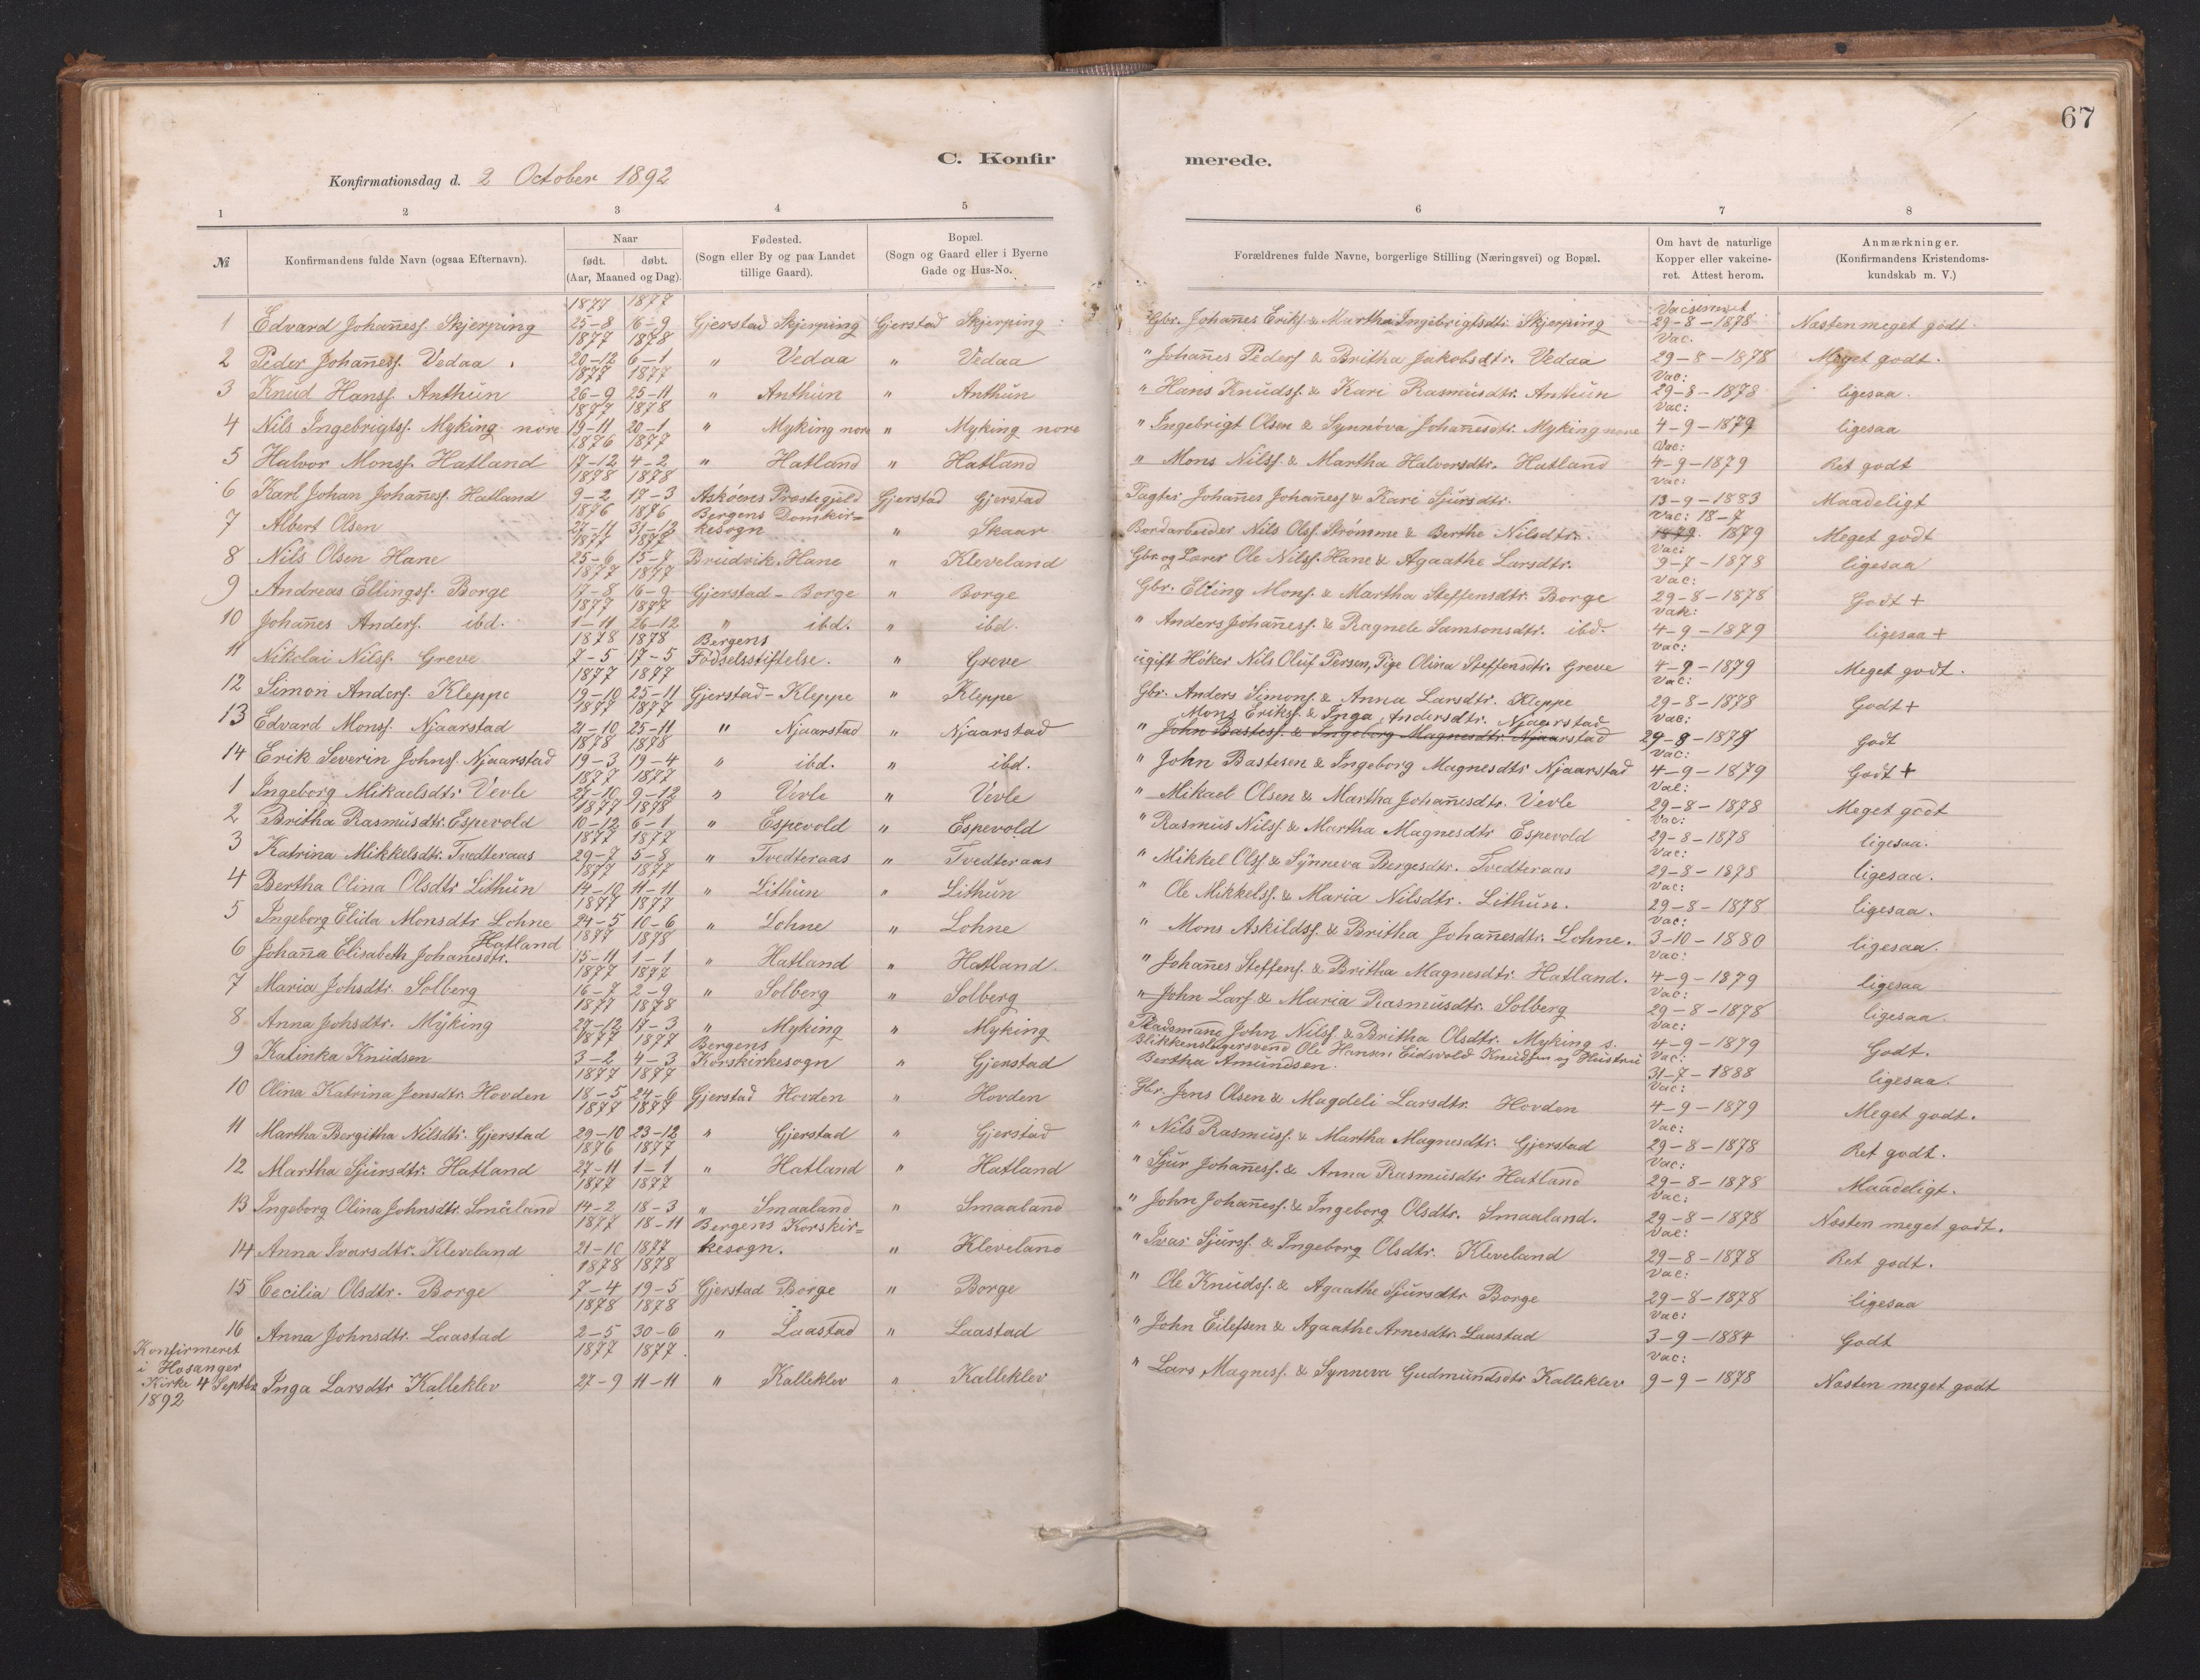 67
C. Konfirmerede.
Konfirmationsdag d. 2 October 1892
1 2 3 4 5 6 7 8
№ | Konfirmandens fulde Navn (ogsaa Efternavn). | Naar født. døbt. (Aar, Maaned og Dag). | Fødested. (Sogn eller By og paa Landet tillige Gaard). | Bopæl. (Sogn og Gaard eller i Byerne Gade og Hus-No. | Forældrenes fulde Navne, borgerlige Stilling (Næringsvei) og Bopæl. | Om havt de naturlige Kopper eller vakcineret. Attest herom. | Anmærkninger. (Konfirmandens Kristendomskundskab m. V.)
1 Edvard Johan̄ess. Skjerping 1877 25-8 1877 16-9 Gjerstad Skjerping Gjerstad Skjerping Gbr. Johan̄es Eriks. & Martha Ingebrigtsdtr. Skjerping Vacsineret 29-8-1878 Næsten meget godt.
2 Peder Johan̄ess. Vedaa 1877 20-12 1878 6-1 " Vedaa " Vedaa " Johan̄es Peders. & Britha Jakobsdtr. Vedaa Vac. 29-8-1878 Meget godt.
3 Knud Hanss. Anthun 1877 26-9 1877 25-11 " Anthun " Anthun " Hans Knudss. & Kari Rasmusdtr. Anthun Vac: 29-8-1878 ligesaa.
4 Nils Ingebrigts. Myking nore 1877 19-11 1878 20-1 " Myking nore " Myking nore " Ingebrigt Olsen & Synnöva Johan̄esdtr. Myking nore Vac: 4-9-1879 ligesaa
5 Halvor Monss. Hatland 1876 17-12 1877 4-2 " Hatland " Hatland " Mons Nilss. & Martha Halvorsdtr. Hatland Vac: 4-9-1879 Ret godt
6 Karl Johan Johan̄ess. Hatland 1878 9-2 1878 17-3 Askøens Præstegjeld Gjerstad Gjerstad Johan̄es Johan̄ess. & Kari Sjursdtr. Vac: 13-9-1883 Maadeligt
7 Albert Olsen 1876 27-11 1876 31-12 Bergens Domkirkesogn " Skaar Bordarbeider Nils Olss. Strømme & Berthe Nilsdtr. Vac: 18-7 1879 Meget godt
8 Nils Olsen Hane 1877 25-6 1877 15-7 Brudvik Hane " Kleveland Gbr. og Lærer Ole Nilss. Hane & Agaathe Larsdtr. Vac: 9-7-1878 ligesaa
9 Andreas Ellingss. Borge 1877 17-8 1877 16-9 Gjerstad - Borge " Borge Gbr. Elling Mons. & Martha Steffensdtr. Borge Vac: 29-8-1878 Godt +
10 Johan̄es Anders. ibd. 1877 1-11 1877 26-12 " ibd. " ibd. " Anders Johan̄ess. & Ragnele Samsonsdtr. ibd. Vak: 4-9-1879 ligesaa +
11 Nikolai Nilss. Greve 1878 7-5 1878 17-5 Bergens Födselsstiftelse. " Greve ugift Höker Nils Oluf Persen, Pige Olina Steffensdtr. Greve Vac: 4-9-1879 Meget godt.
12 Simon Anders. Kleppe 1877 19-10 1877 25-11 Gjerstad - Kleppe " Kleppe Gbr. Anders Simons. & Anna Larsdtr. Kleppe Vac: 29-8-1878 Godt +
13 Edvard Monss. Njaarstad 1877 21-10 1877 25-11 " Njaarstad " Njaarstad Mons Erikss. & Inga Andersdtr. Njaarstad
" John Bastess. & Ingeborg Magnesdtr. Njaarstad Vac: 29-8-1878 Godt
14 Erik Severin Johns. Njaarstad 1878 19-3 1878 19-4 " ibd. " ibd. " John Bastesen & Ingeborg Magnesdtr Njaarstad Vac: 4-9-1879 Godt +
1 Ingeborg Mikaelsdtr. Vevle 1877 27-10 1877 9-12 " Vevle " Vevle " Mikael Olsen & Martha Johan̄esdtr. Vevle Vac: 29-8-1878 Meget godt
2 Britha Rasmusdtr. Espevold 1877 10-12 1878 6-1 " Espevold " Espevold " Rasmus Nilss. & Martha Magnesdtr Espevold Vac: 29-8-1878 ligesaa.
3 Katrina Mikkelsdtr. Tvedteraas 1877 29-7 1877 5-8 " Tvedteraas " Tvedteraas " Mikkel Olss. & Synneva Bergesdtr. Tvedteraas Vac: 29-8-1878 ligesaa.
4 Bertha Olina Olsdtr Lithun 1877 14-10 1877 11-11 " Lithun " Lithun " Ole Mikkelss. & Maria Nilsdtr. Lithun. Vac: 29-8-1878 ligesaa.
5 Ingeborg Elida Monsdtr Lohne 1877 24-5 1877 10-6 " Lohne " Lohne " Mons Askildss. & Britha Johan̄esdtr. Lohne. Vac: 3-10-1880 ligesaa.
6 Johan̄a Elisabeth Johan̄esdtr. Hatland 1877 15-11 1878 1-1 " Hatland " Hatland. " Johan̄es Steffens. & Britha Magnesdtr. Hatland. Vac: 4-9-1879 ligesaa
7 Maria Johsdtr. Solberg 1877 16-7 1877 2-9 " Solberg " Solberg " John Lars. & Maria Rasmusdtr. Solberg Vac: 29-8-1878 ligesaa.
8 Anna Johsdtr. Myking 1877 27-12 1878 17-3 " Myking " Myking Pladsmand John Nilss. & Britha Olsdtr. Myking s. Vac: 4-9-1879 Godt.
9 Katinka Knudsen 1877 3-2 1877 4-3 Bergens Korskirkesogn " Gjerstad Blikkenslagersvend Ole Hansen Eidsvold Knudsen og Hustru Bertha Amundsen. Vac: 31-7-1888 ligesaa.
10 Olina Katrina Jensdtr. Hovden 1877 18-5 1877 24-6 Gjerstad Hovden " Hovden Gbr. Jens Olsen & Magdeli Larsdtr. Hovden Vac: 4-9-1879 Meget godt.
11 Martha Bergitha Nilsdtr. Gjerstad 1877 29-10 1877 23-12 " Gjerstad " Gjerstad " Nils Rasmuss. & Martha Magnesdtr. Gjerstad Vac: 29-8-1878 Ret godt.
12 Martha Sjursdtr. Hatland 1876 27-11 1877 1-1 " Hatland " Hatland " Sjur Johan̄ess. & Anna Rasmusdtr Hatland Vac: 29-8-1878 Maadeligt.
13 Ingeborg Olina Johnsdtr. Småland 1877 14-2 1877 18-3 " Smaaland " Smaaland " John Johan̄ess. & Ingeborg Olsdtr. Smaaland. Vac: 29-8-1878 Næsten meget godt.
14 Anna Ivarsdtr. Kleveland 1877 21-10 18-11 1877 Bergens Korskirkesogn. " Kleveland " Ivar Sjurss. & Ingeborg Olsdtr. Kleveland Vac: 29-8-1878 Ret godt.
15 Cecilia Olsdtr. Borge 1878 7-4 1878 19-5 Gjerstad Borge " Borge " Ole Knudss. & Agaathe Sjursdtr Borge Vac: 29-8-1878 ligesaa
16 Anna Johnsdtr. Laastad 1878 2-5 1878 30-6 " Laastad " Laastad " John Eilefsen & Agaathe Arnesdtr. Laastad Vac: 3-9-1884 Godt
Konfirmeret
i Hosanger
Kirke 4 Septbr
1892
Inga Larsdtr Kalleklev 1877 27-9 1877 11-11 " Kalleklev " Kalleklev " Lars Magness. & Synneva Gudmundsdtr Kalleklev Vac: 9-9-1878 Næsten meget godt